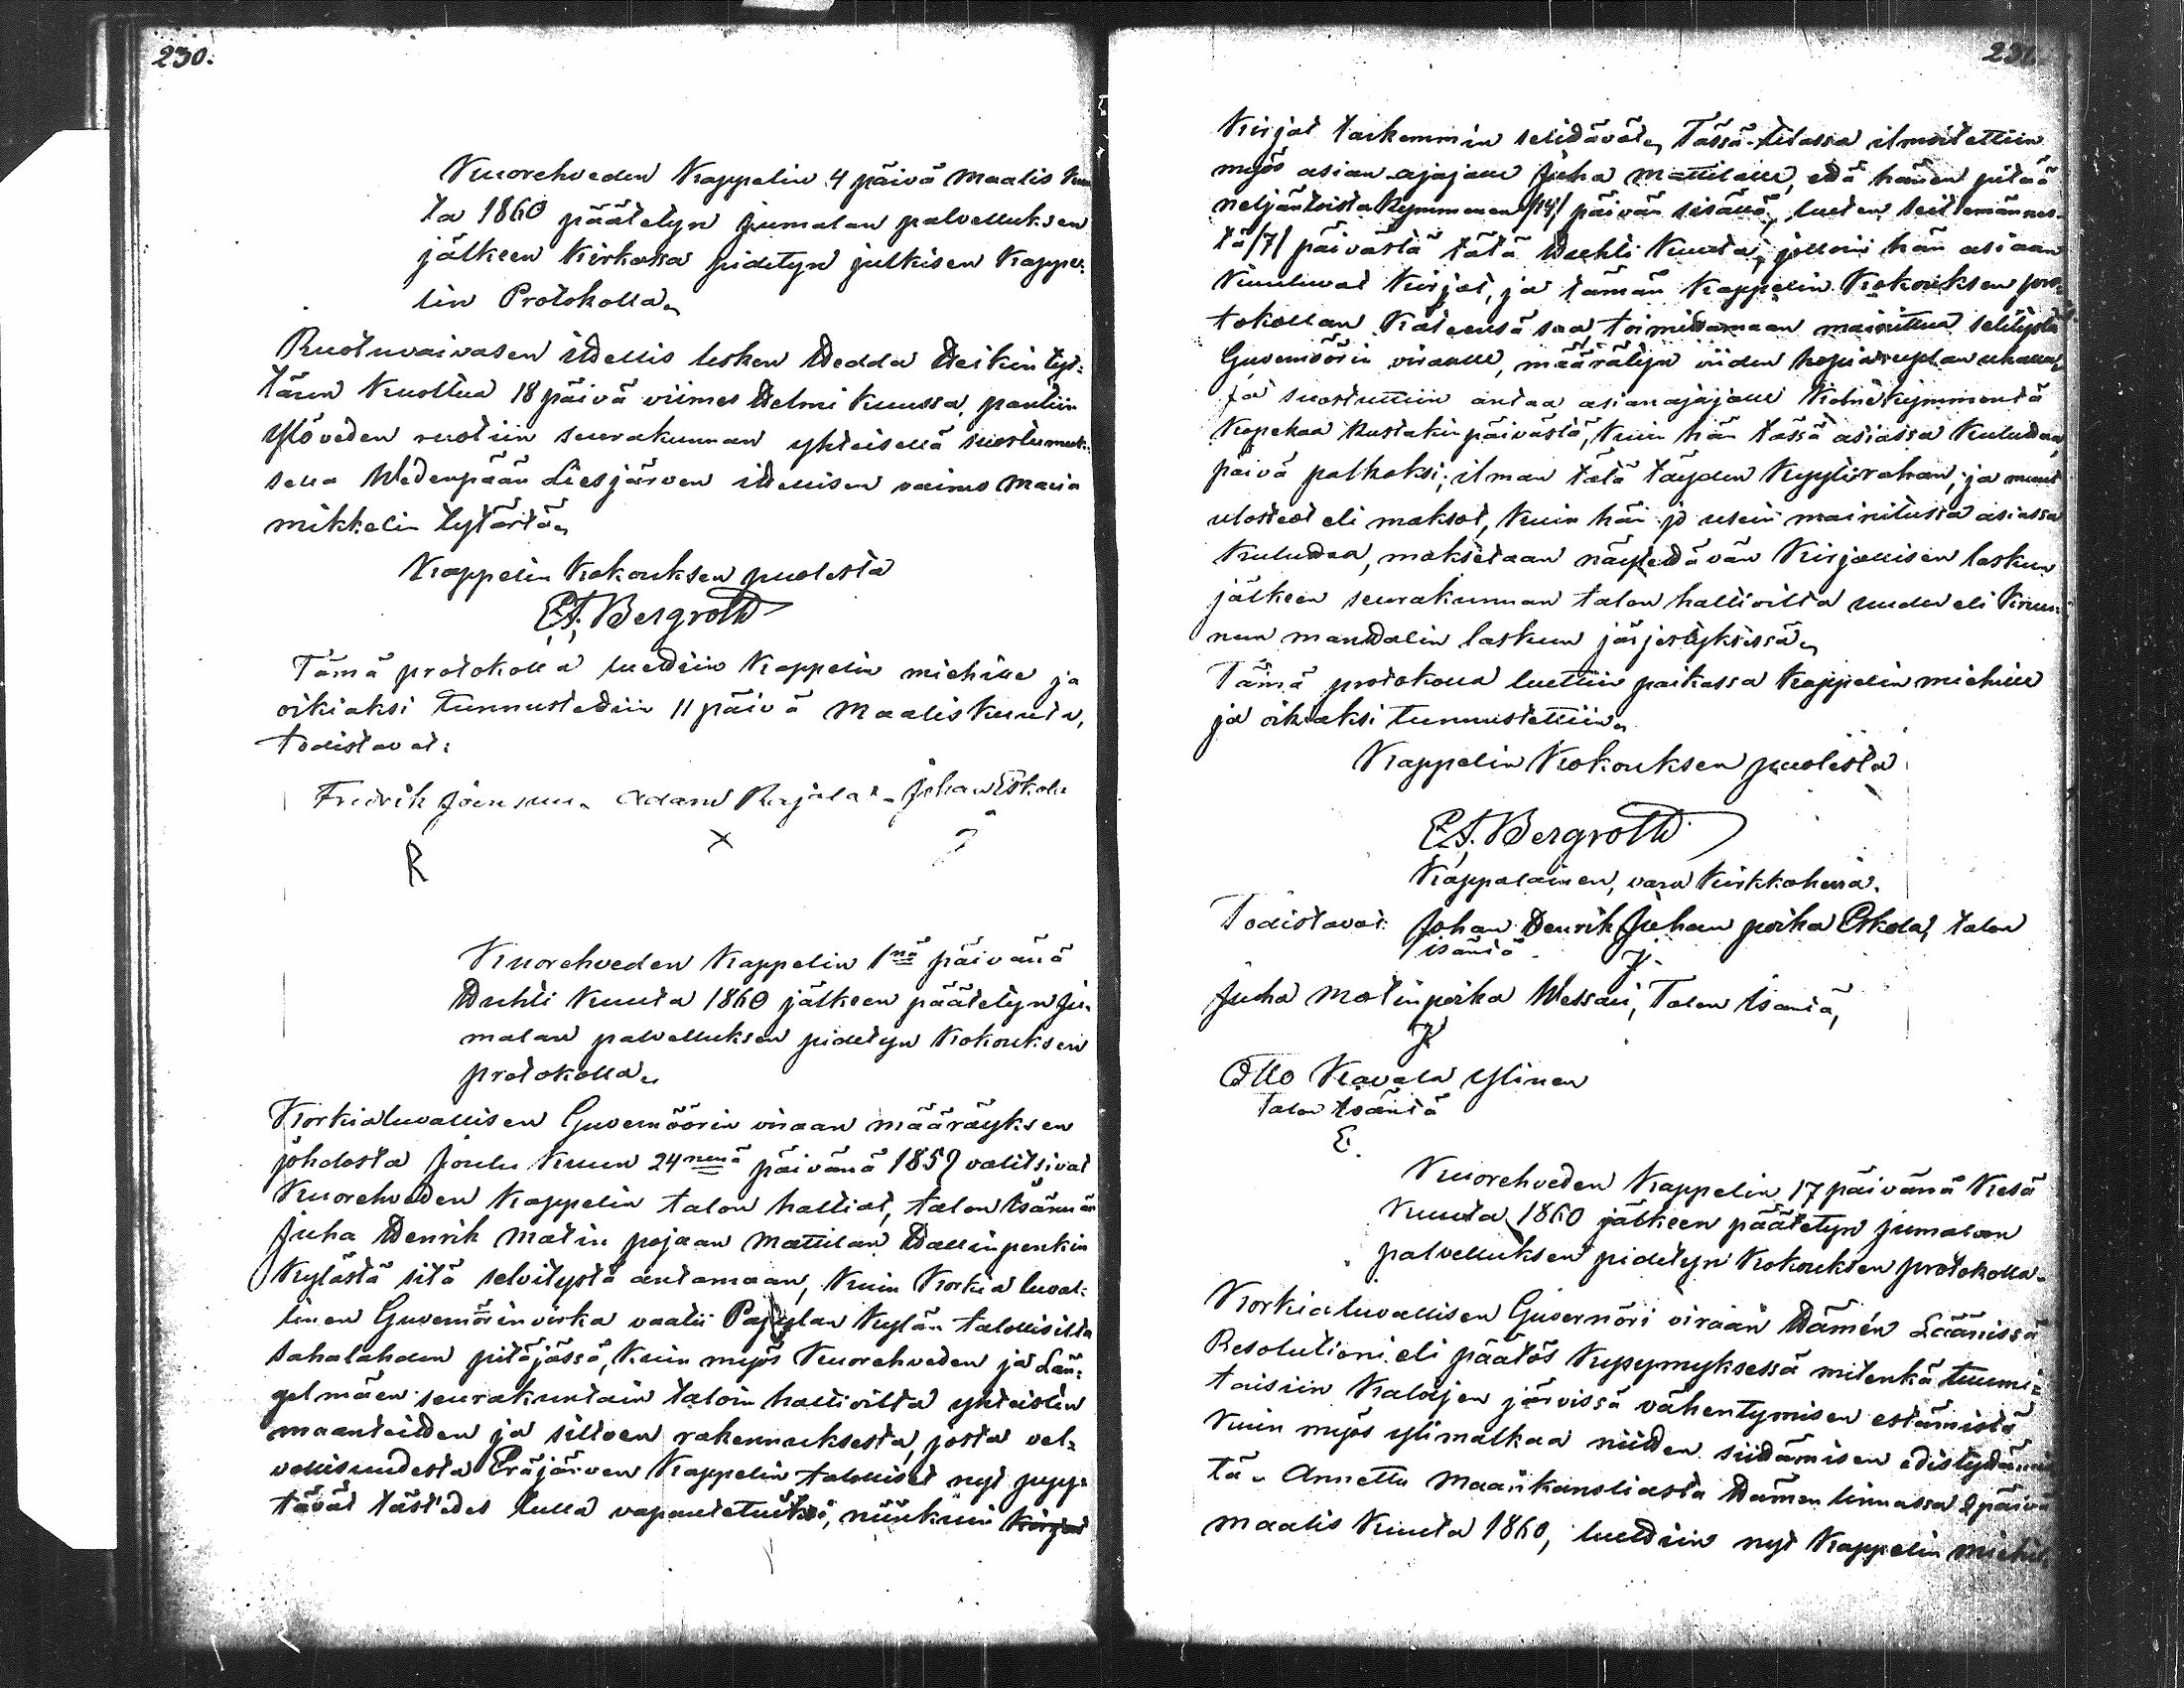 230.
Kuorehveden Kappelin 4 päivä Maalis Kuu
ta 1860 päätetyn jumalan palvelluksen
jälkeen Kirkossa pidetyn julkisen Kappe-
lin Protokolla„
Ruotuvaivasen itellis lesken Hedda Heikin tyt-
tären Kuoltua 18 päivä viimes Helmi Kuussa, pantiin
Ylöveden ruotiin seurakunnan yhteisellä suostumuk-
sella Wedenpään Liesjärven itellisen vaimo Maria
mikkelin tytärtä„
Kappelin Kokouksen puolesta
E.A. Bergroth
Tämä protokolla luettiin Kappelin miehille ja
oikiaksi tunnustettiin 11 päivä Maaliskuuta,
todistavat:
Fredrik Joensuu. Adam Rajala. Johan Eskola
R X
Kuorehveden Kappelin 1nä päivänä
Huhti Kuuta 1860 jälkeen päätetyn Ju-
malan palvelluksen pidetyn Kokouksen
protokolla„
Korkialuvallisen Guvernöörin viraan määräyksen
johdosta Joulu Kuun 24nenä päivänä 1857 valitsivat
Kuorehveden Kappelin talon haltiat, talon Isännän
Juha Henrik Matin pojaan Mattilan Hallinpenkin
Kylästä sitä selvitystä antamaan, Kuin Korkia luval-
linen Guvernörinvirka vaatii Pajulan Kylän talollisilta
Sahalahden pitäjässä, Kuin myös Kuorehveden ja Län-
gelmäen seurakuntain taloin haltioilta yhteisten
maanteiden ja siltoen rakennuksesta, josta vel-
vollisuudesta Eräjärven Kappelin talolliset nyt pyy-
tävät täst'edes tulla vapautetuiksi, niinkuin Kirjat
231.
Kirjat tarkemmin selittävät„ Tässä tilassa ilmoitettiin
myös asian ajajalle Juha Mattilalle, että hänen pitää
neljäntoista Kymmenen /14/ päivän sisällä, lueten seittemännes-
tä /7/ päivästä tätä Huhti Kuuta, jolloin hän asiaan
Kuuluvat Kirjat, ja tämän Kappelin Kokouksen pro-
tokollan Käteensä saa, toimittamaan mainittua selitystä
Guvernöörin viraalle, määrätyn viiden hopiaruplan uhalla,
Ja suostuttiin antaa asianajajalle Kolmekymmentä
Kopekaa Kustakin päivästä, Kuin hän tässä asiassa Kuluttaa,
päivä palkaksi; ilman tätä täyden Kyytirahan, ja muut
ulosteot eli maksot, Kuin hän jo usein mainitussa asiassa
Kuluttaa, maksetaan näytettävän Kirjallisen laskun
jälkeen seurakunnan talon haltioilta uuden eli Kruu-
nun manttalin laskun järjestyksessä„
Tämä protokolla luettiin paikassa Kappelin miehille
ja oikiaksi tunnustettiin„
Kappelin Kokouksen puolesta
E.A. Bergroth
Kappalainen, vara Kirkkoherra.
Todistavat: Johan Henrik Juhan poika Eskola, talon
isäntä
Juha Matinpoika Wessari, Talon Isäntä,
Otto Kavala Ylinen
talon Isäntä
E.
Kuorehveden Kappelin 17 päivänä Kesä
Kuuta 1860 jälkeen päätetyn jumalan
palvelluksen pidetyn Kokouksen protokolla„
Korkialuvallisen Guvernöri viraan Hämén Läänissä
Resolutioni eli päätös Kysymyksessä mitenkä tuumi-
taisiin Kalojen järvissä vähentymisen estämistä
Kuin myös ylimalkaa niiden siittämisen edistyttämis
tä„ Annettu Maankansliasta Hämen linnassa 2 päivä
Maalis Kuuta 1860, luettiin nyt Kappelin miehil-